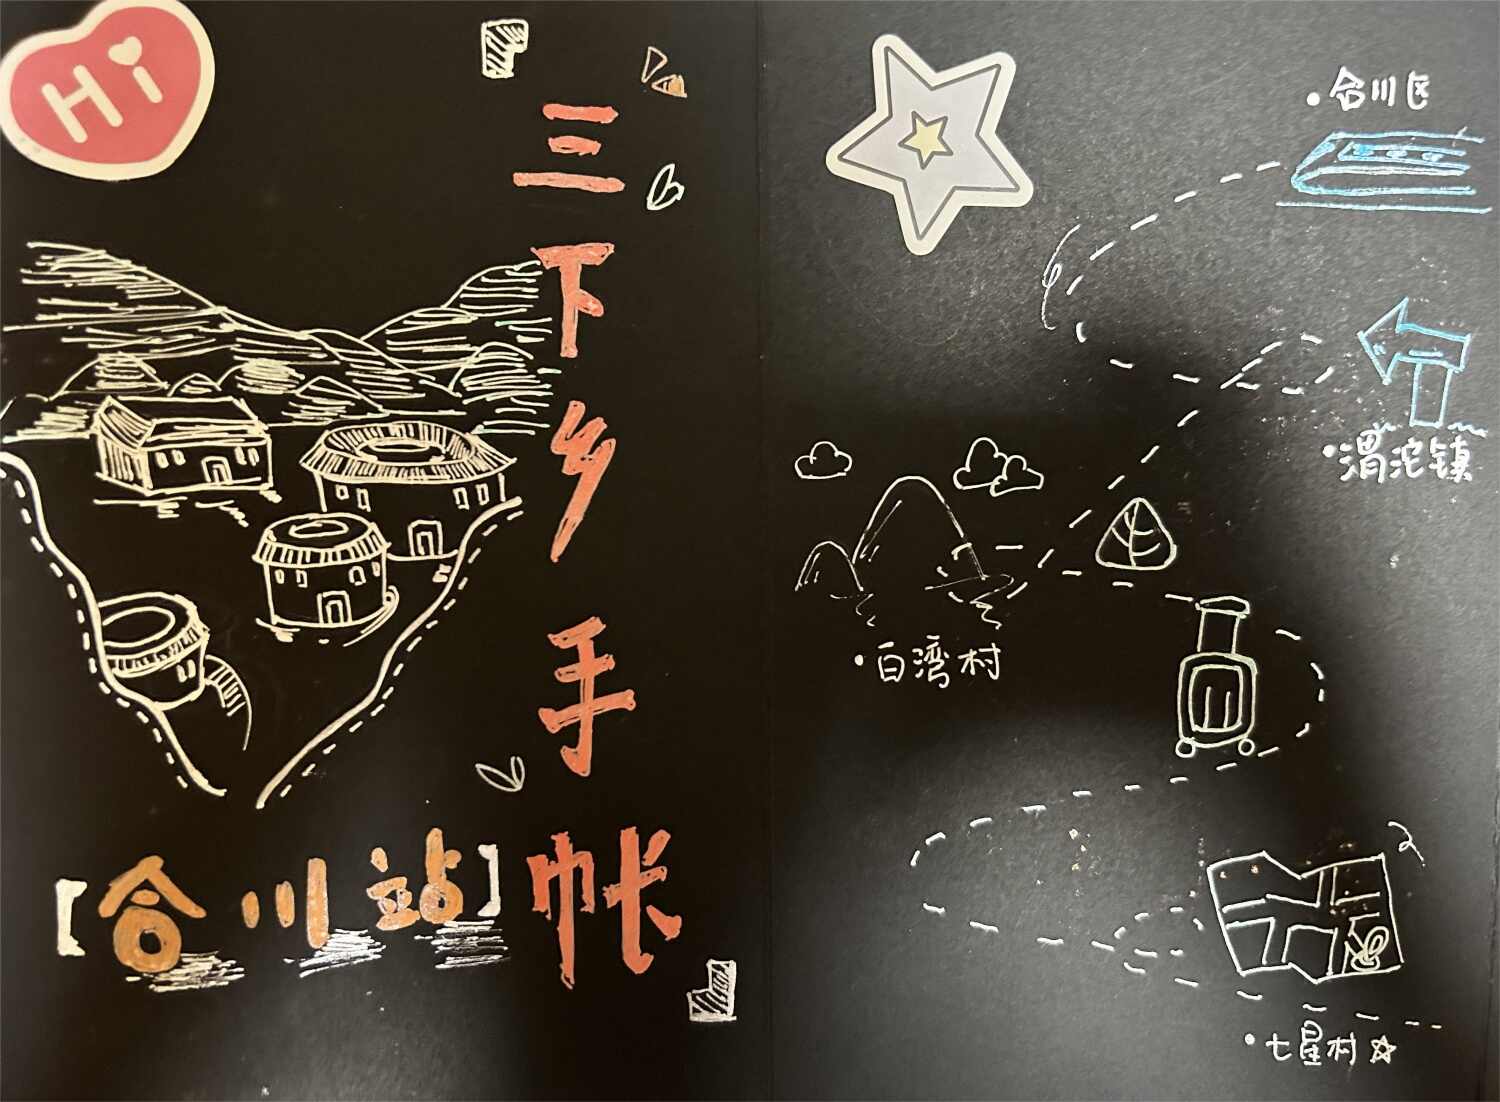 Hi
三下乡手帐
【合川站】
合川区
渭沱镇
白湾村
七星村